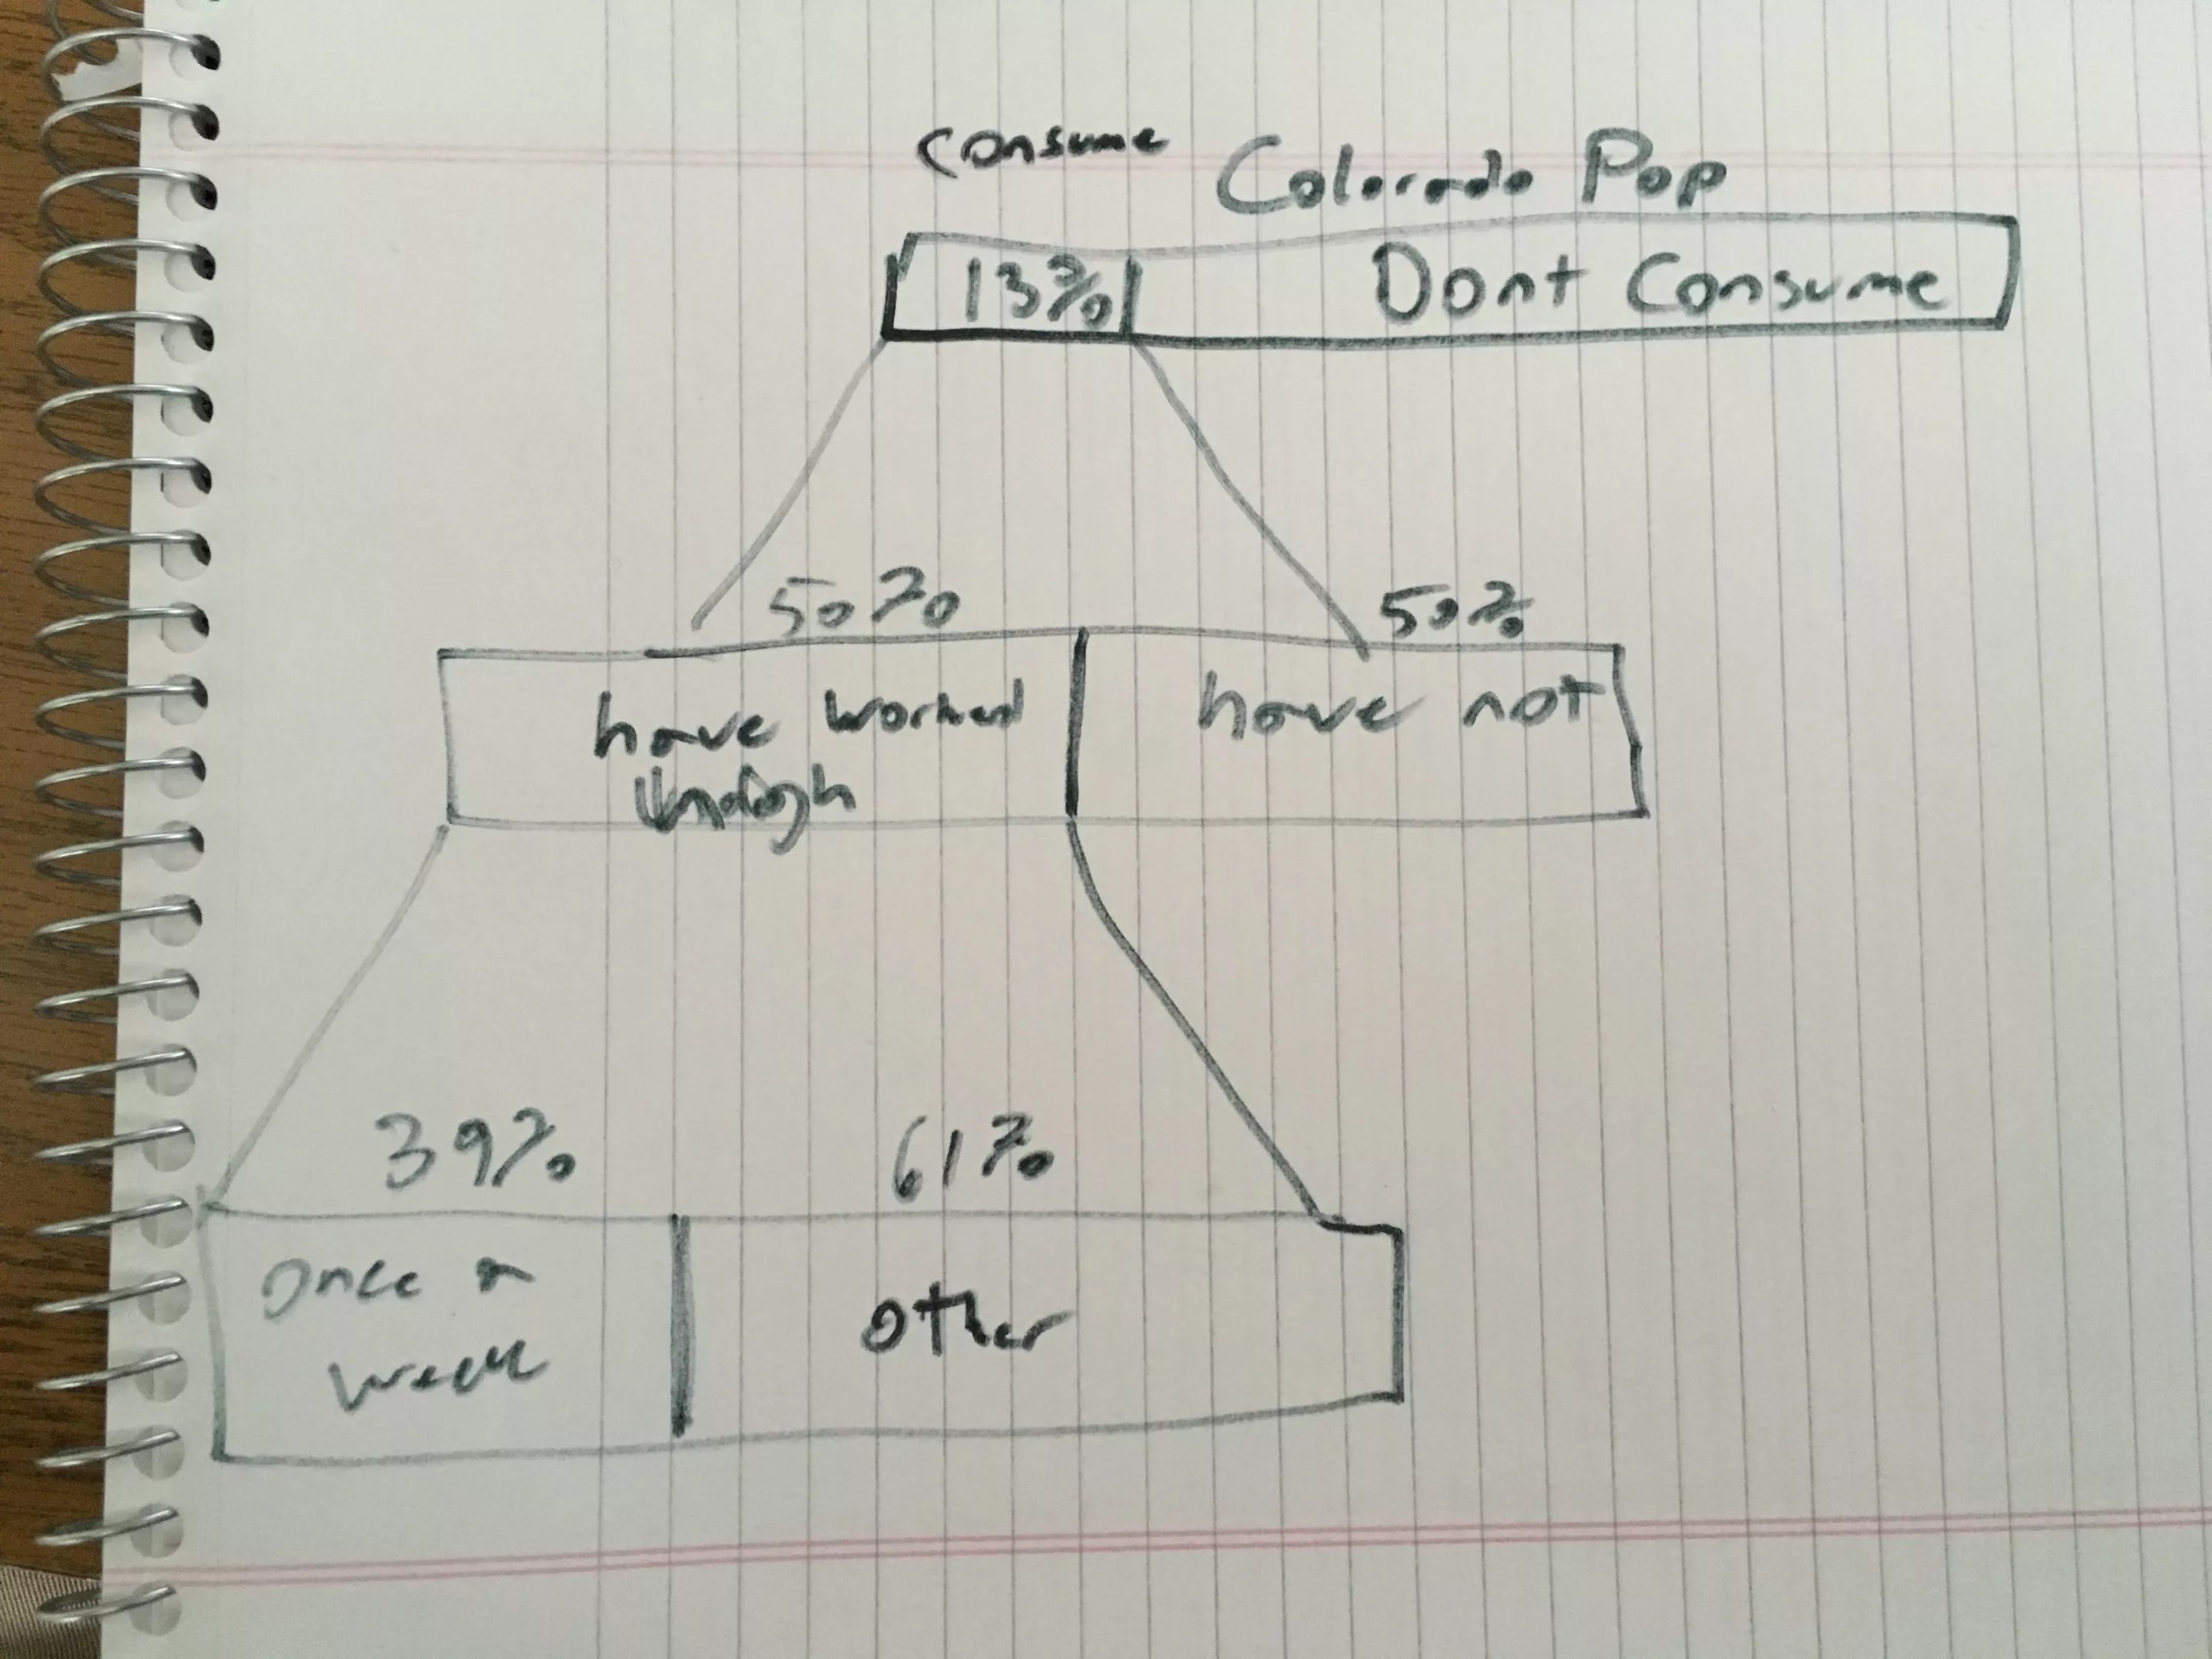 consume
Colorado Pop
13%
Dont Consume
50%
50%
have worked
have not
39%
61%
once a
week
other